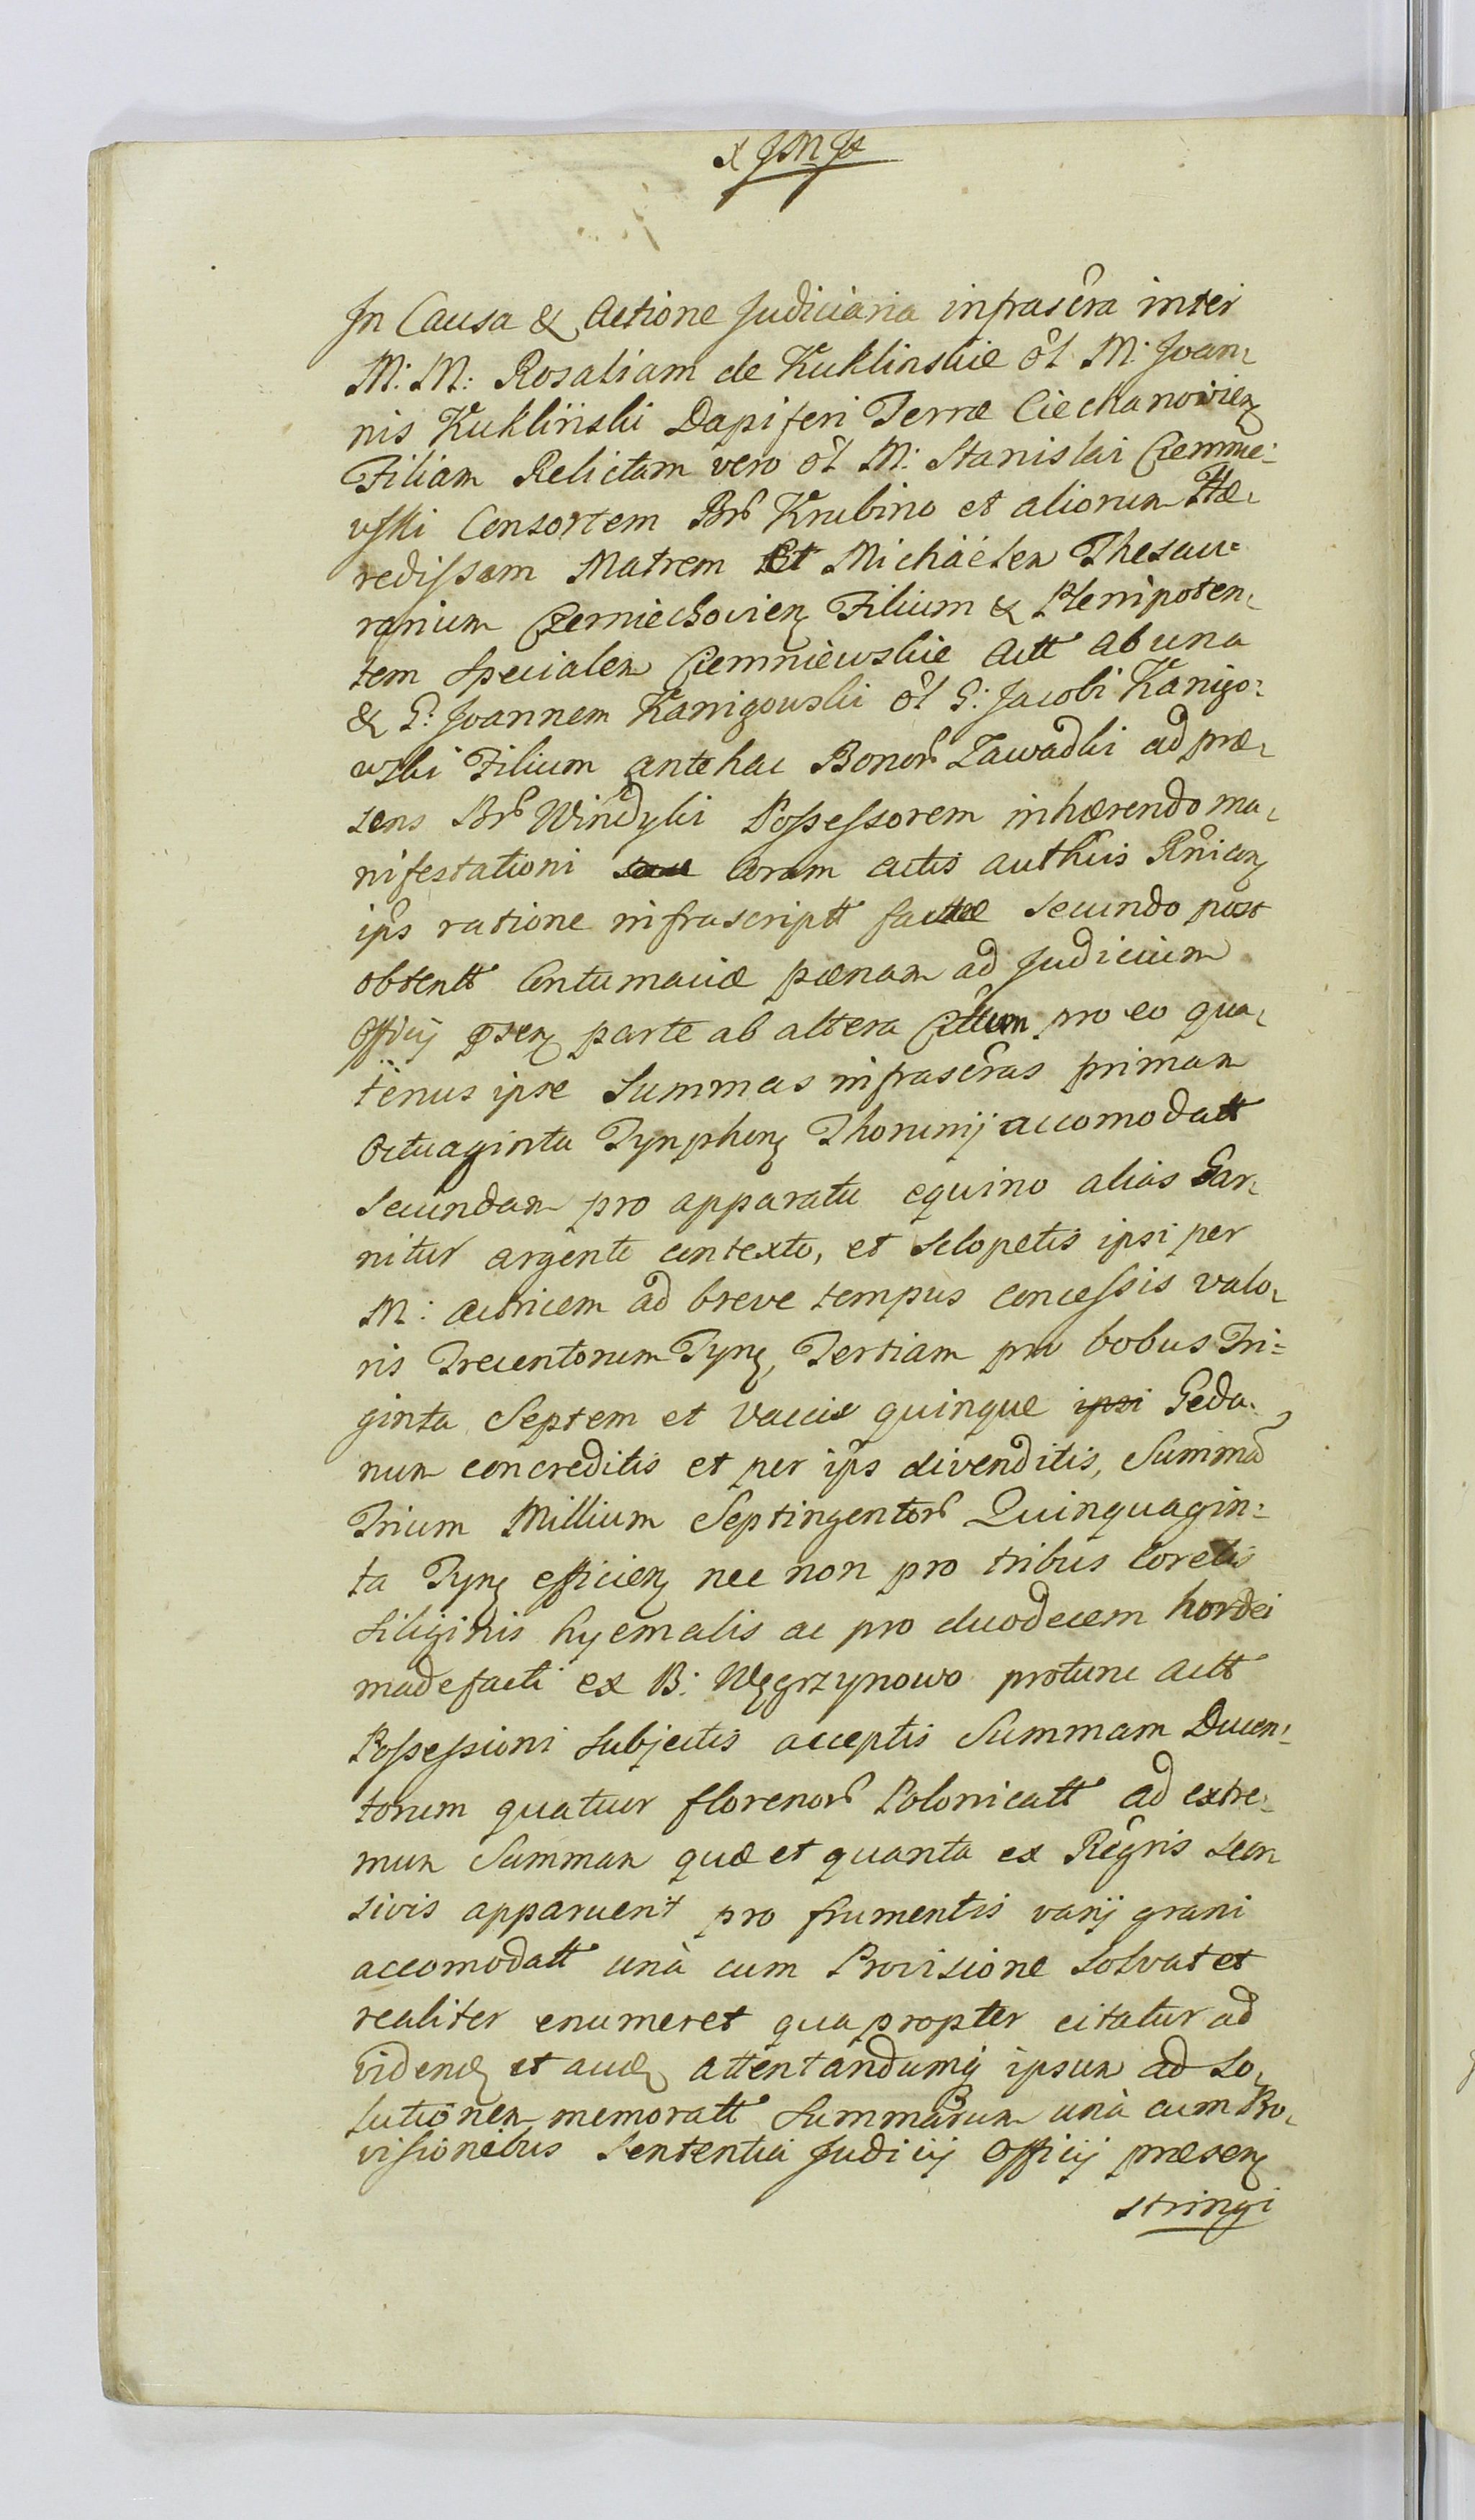 In Causa & Actione Judiciaria infrascra inter
M: M: Rosaliam de Kuklinskie ol M: Joan¬
nis Kukliński Dapiferi Terræ Ciechanovien
Filiam Relictam vero ol M: Stanislai Ciemnie¬
wski Consortem Br Krubino et aliorum Hæ¬
redissam Matrem Et Michäelem Thesau=
rarium Czerniechovien Filium & Plenipoten¬
tem Specialem Ciemniewskie Actt ab una
& G: Joannem Kanigowski ol G: Jacobi Kanigo¬
wski Filium antehac Bonor Zawadki ad præ¬
sens Br Windyki Possessorem inhærendo ma¬
nifestationi coram actis authcis Rnian
ips ratione infrascriptt factæ secundo post
obtentt Contumaciæ pænam ad Judicium
Officij psen parte ab altera Cittum pro eo qua¬
tenus ipse Summas infrascras primam
Octuaginta Tynphon Thorunij accomodatt
Secundam pro apparatu equino alias Gar¬
nitur argento contexto, et Sclopetis ipsi per
M: actricem ad breve tempus concessis valo¬
ris Trecentorum Tyn, Tertiam pro bobus Tri=
ginta Septem et vaccis quinque ipsi Geda¬
num concreditis et per ips divenditis, Summa
Trium Millium Septingentor Quinquagin=
ta Tyn efficien nec non pro tribus coretis
Siliginis hyemalis ac pro duodecem hordei
madefacti ex B: Węgrzynowo protunc actt
Possessioni Subjectis acceptis Summam Ducen¬
torum quatuor florenor Polonicatt ad extre¬
mum Summam quæ et quanta ex Regris
sivis apparuerit pro frumentis varij grani
accomodatt unà cum Provisione solvat et
realiter enumeret quapropter citatur ad
Videnđ et auđ attentandumq ipsum ad So¬
lutionem memoratt Summarum unà cum Pro¬
visionibus Sententia Judicij Officij præsen
stringi